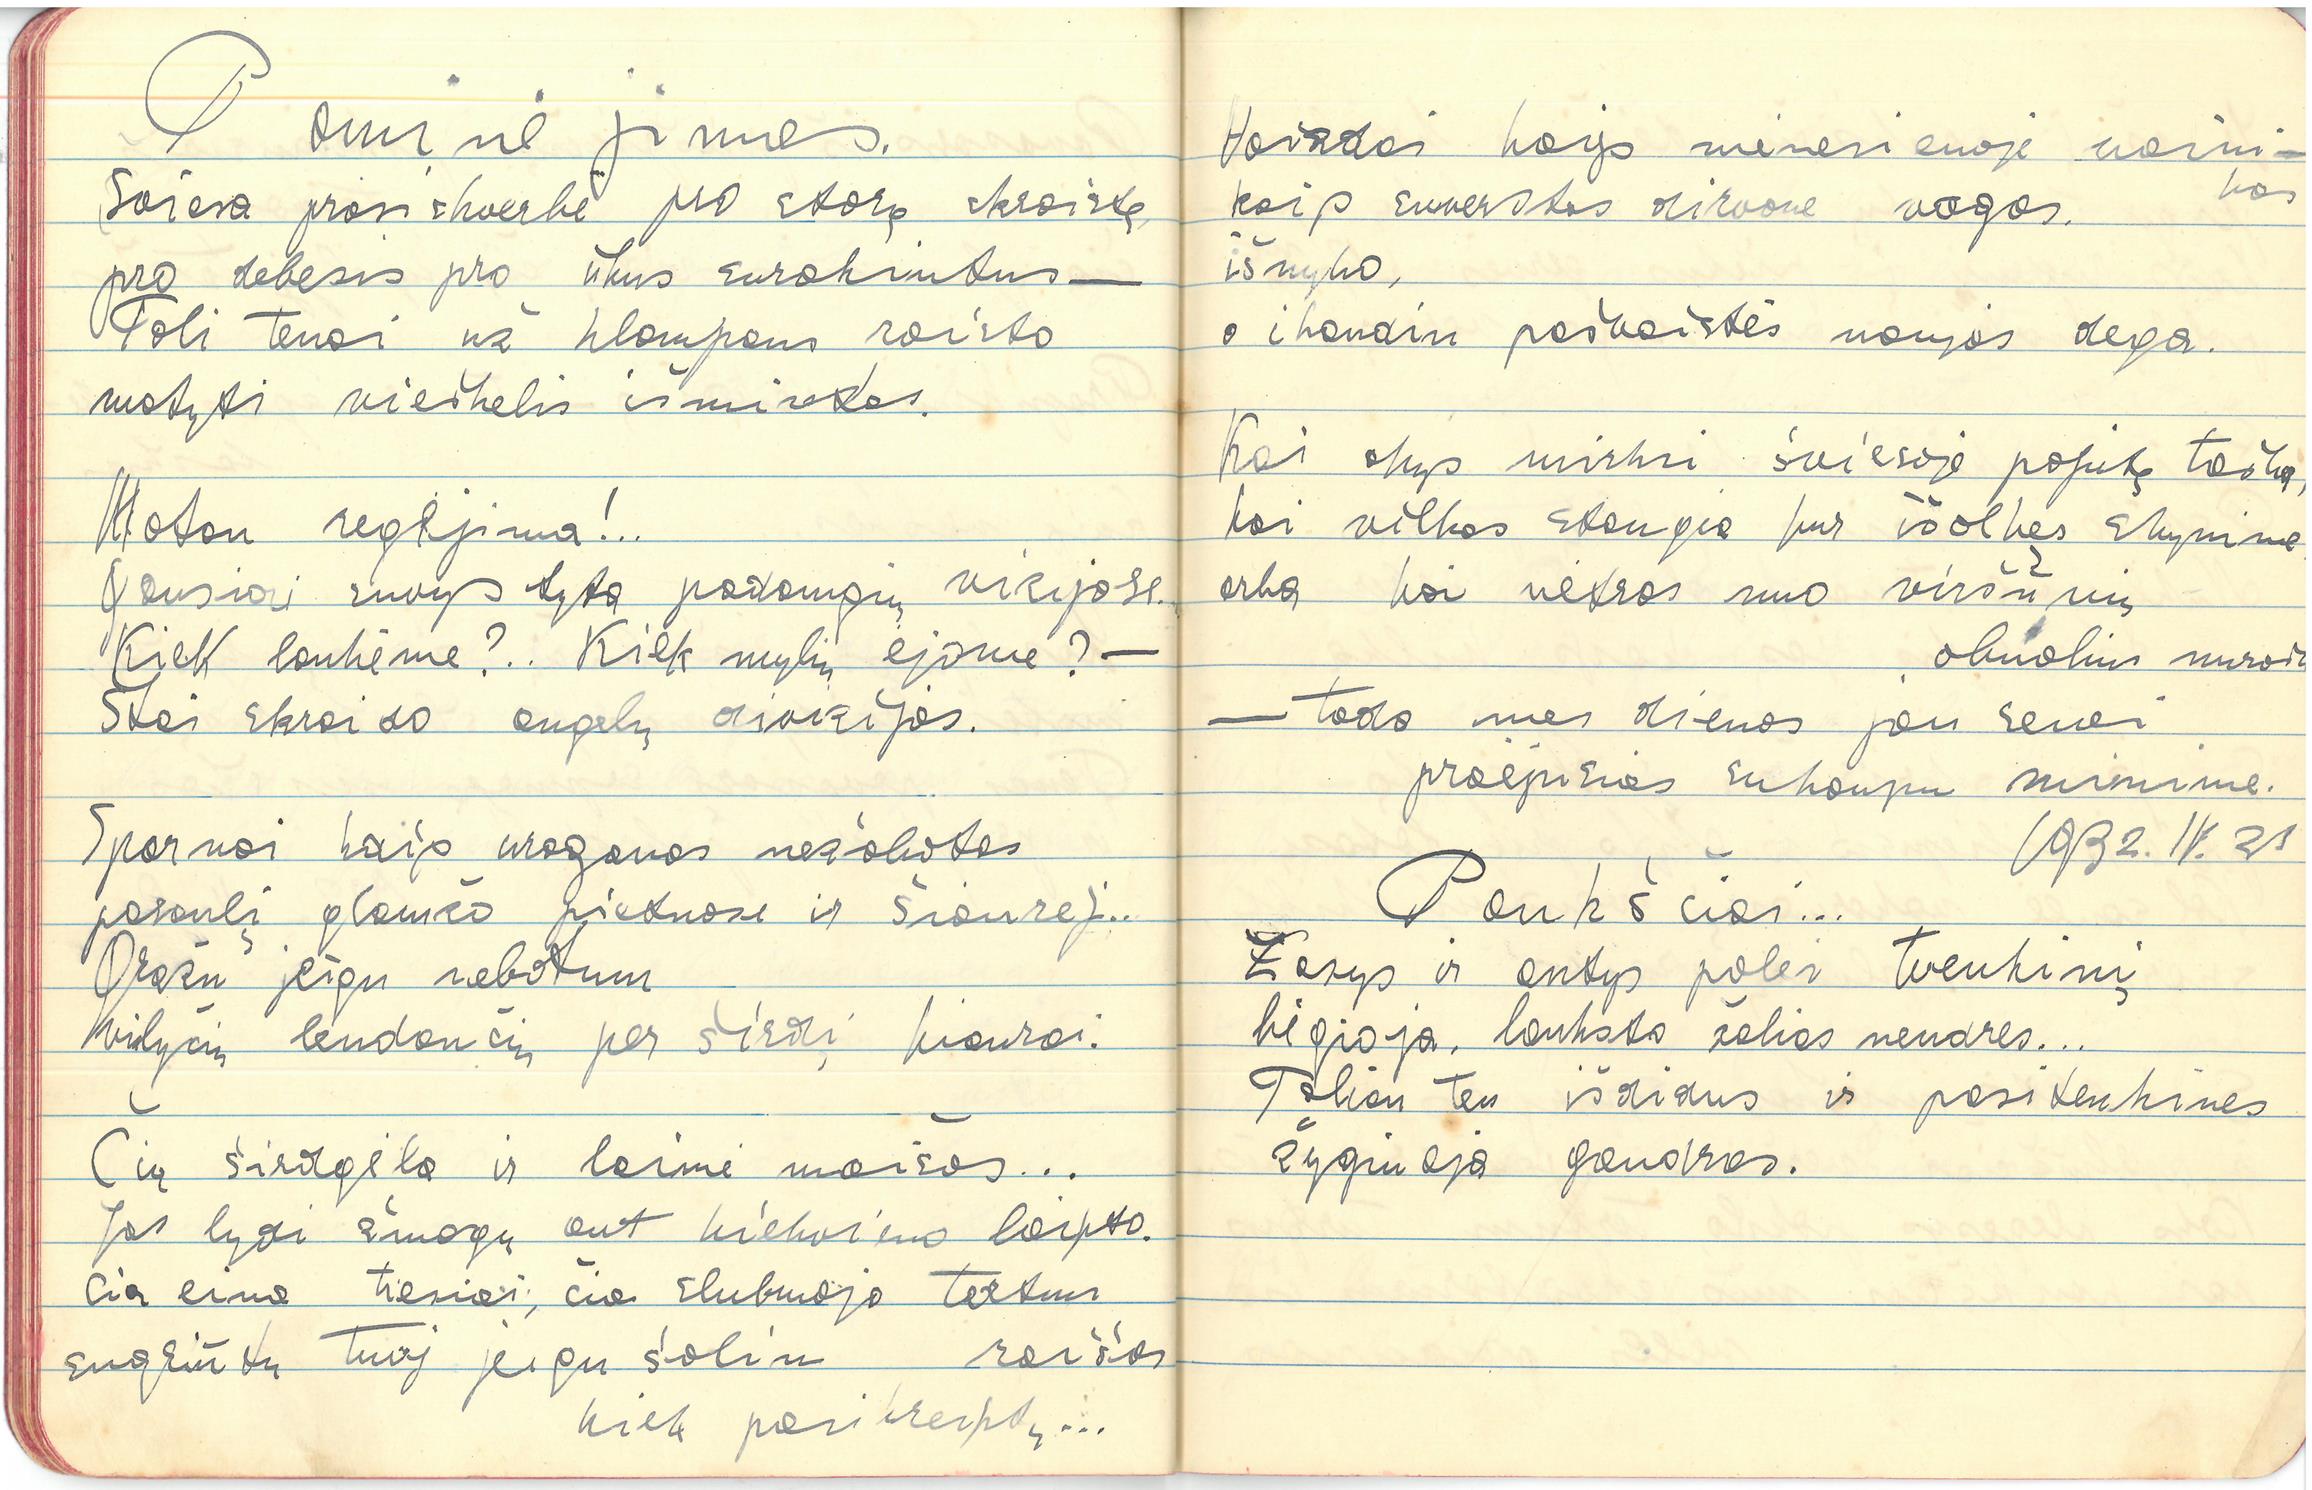 Paminėjimas.
Šviesa prasiskverbė pro storą skraistę,
pro debesis pro ūkus surakintus—
Toli tenai už klampaus raisto
matyti vieškelis išmintas.
Matau regėjimą!..
Gausiai suvys tyta padangių vizijose.
Kiek laukėme?.. Kiek mylių ėjome?—
Štai skraido angelų divizijos.
Sparnai kaip uraganas nežabotas
pasaulį glamžo pietuose ir šiaurėj..
Gražu jeigu nebotum
vilyčių lendančių per širdį kiaurai.
Čių širdgėla ir laimė maišos...
Jos lydi žmogų ant kiekvieno laipto.
Čia eina tiesiai, čia slubuoja tartum
sugriūtų tuoj jeigu šalin raišas
kiek pasikreiptų...
Vaizdai kaip mėnesienoje vaini-
kas
kaip suverstos dirvone vagos.
išnyko,
o ikandin pašvaistės naujos dega.
Kai akys mirksi šviesoje pajutę tašką,
kai vilkas staugia kur išalkęs skynime
arba kai vėtros nuo viršūnių
obuolius
—tada mes dienas jau senai
praėjusias su kaupu minime.
1932. IV. 21
Paukščiai...
Žąsys ir antys palei tvenkinį
bėgioja, lauksto žalias nendres...
Toliau ten išdidus ir pasitenkinęs
žygiuoja gandras.